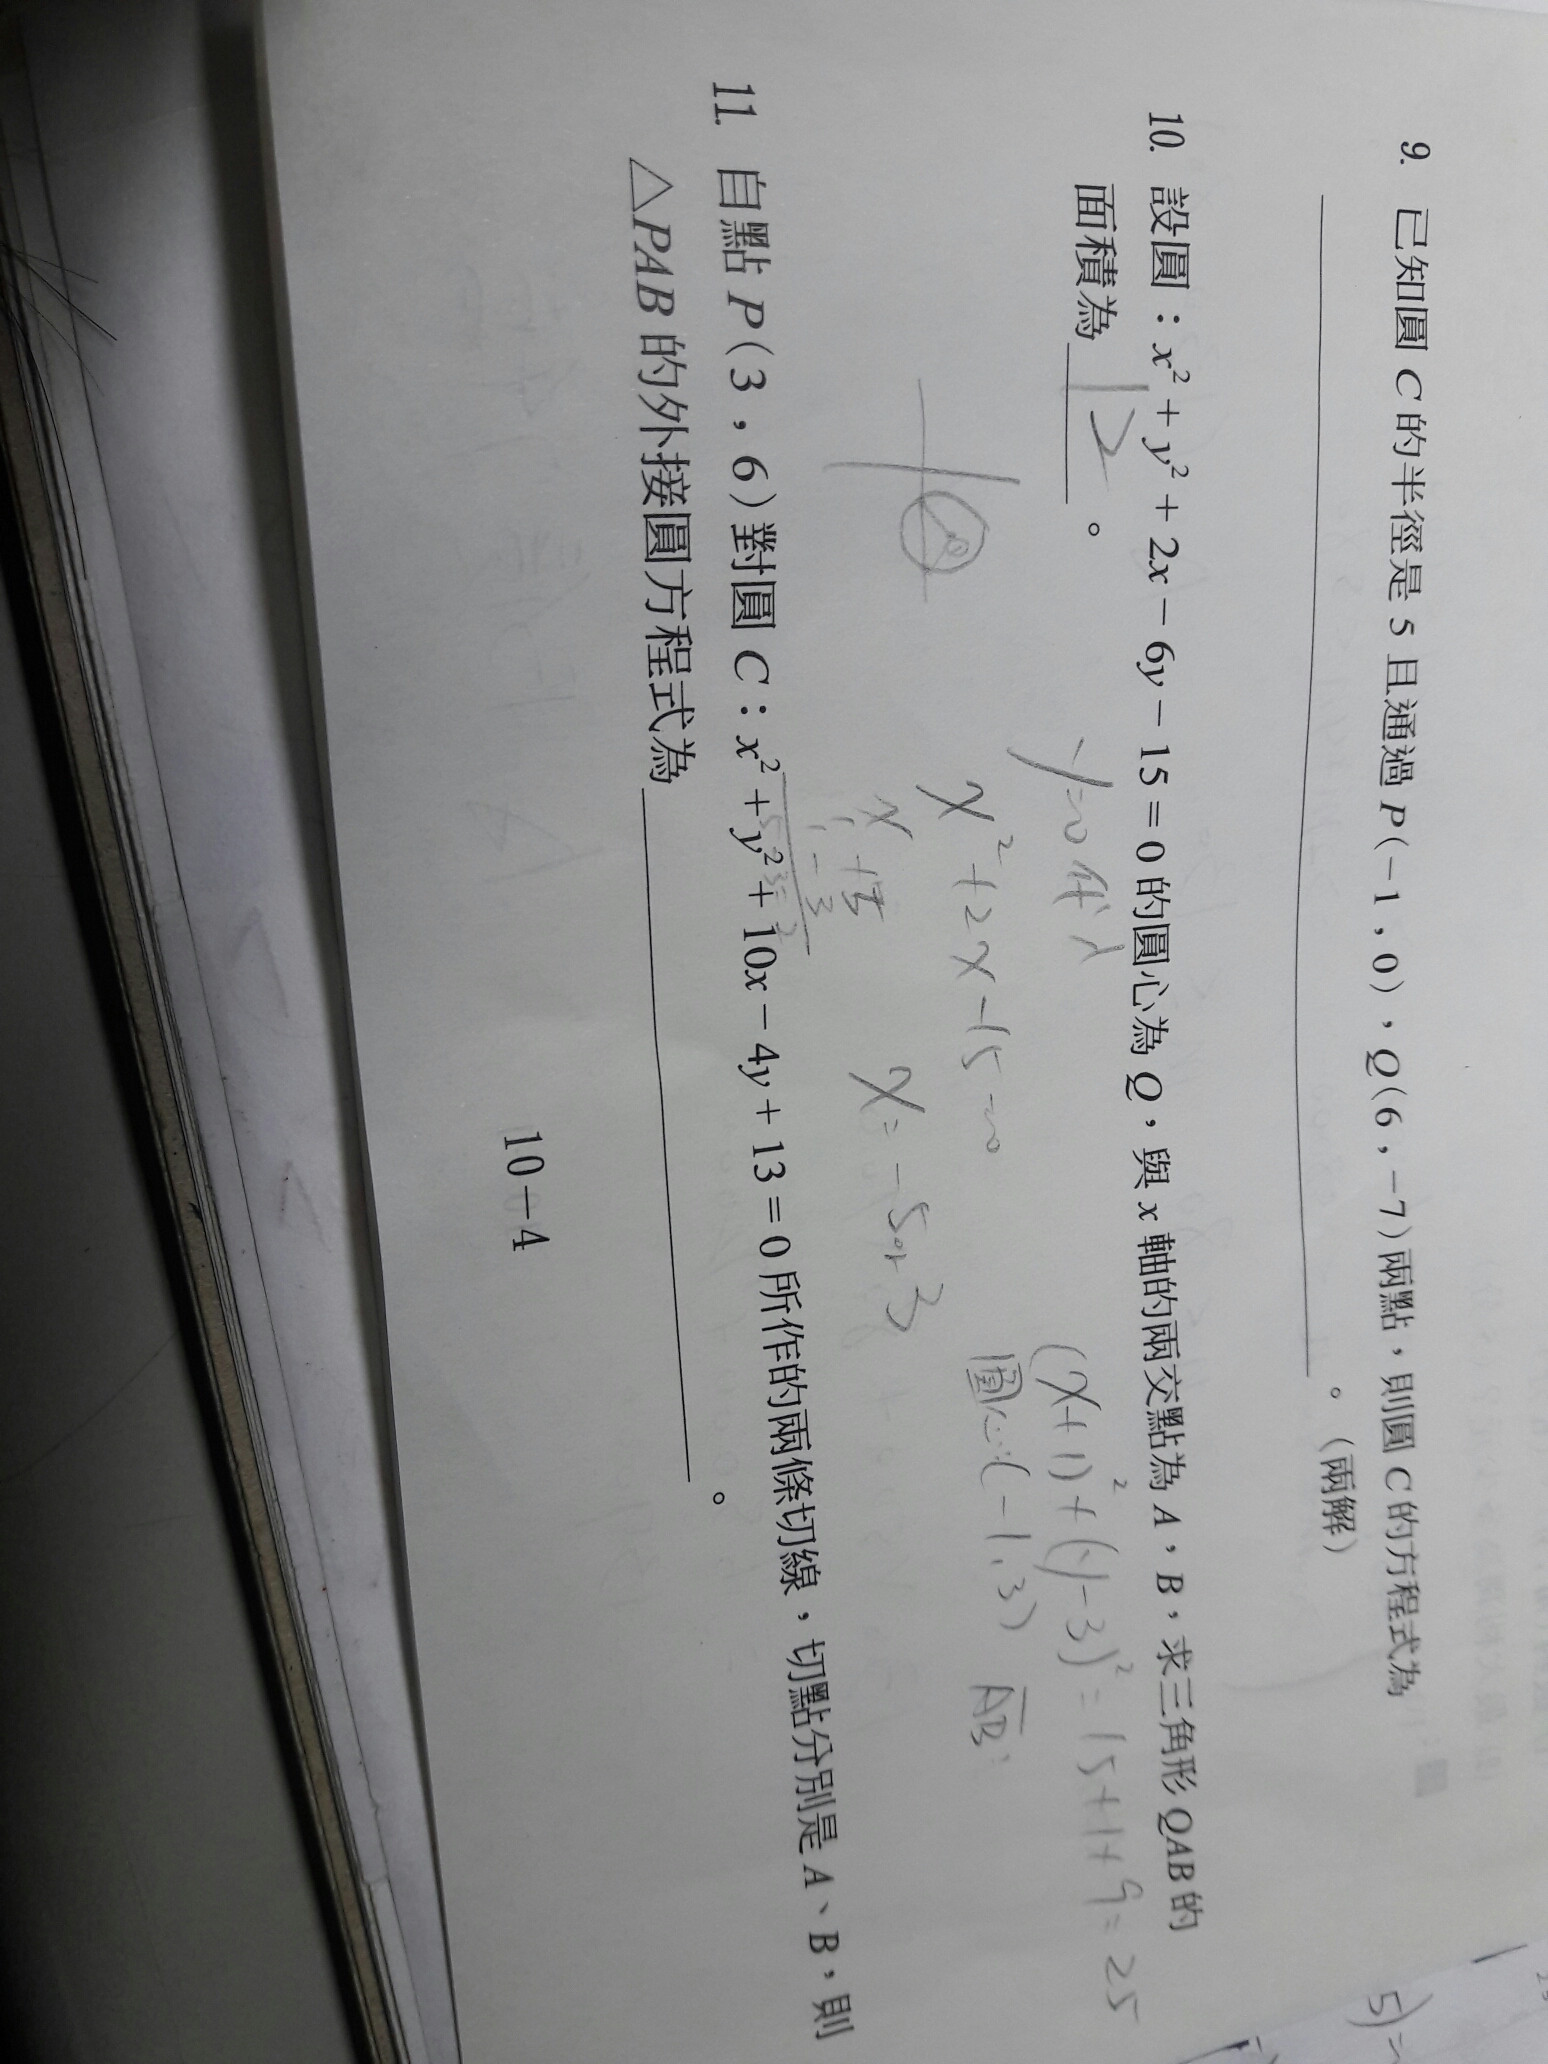 9. 已知圓 C 的半徑是 5 且通過 P(-1,0),Q(6,-7)兩點,則圓 C 的方程式為
。(兩解)
10. 設圓:x²+y²+2x-6y-15=0的圓心為 Q,與 x 軸的兩交點為 A,B,求三角形 QAB 的
面積為 12 。
y=0代入
(x+1)²+(y-3)²=15+1+9=25
x²+2x-15=0
圓心:(-1,3) AB:
x +5
x=-5or3
-3
11. 自點 P(3,6)對圓 C:x²+y²+10x-4y+13=0所作的兩條切線,切點分別是 A、B,則
△PAB 的外接圓方程式為 。
10-4
5)=